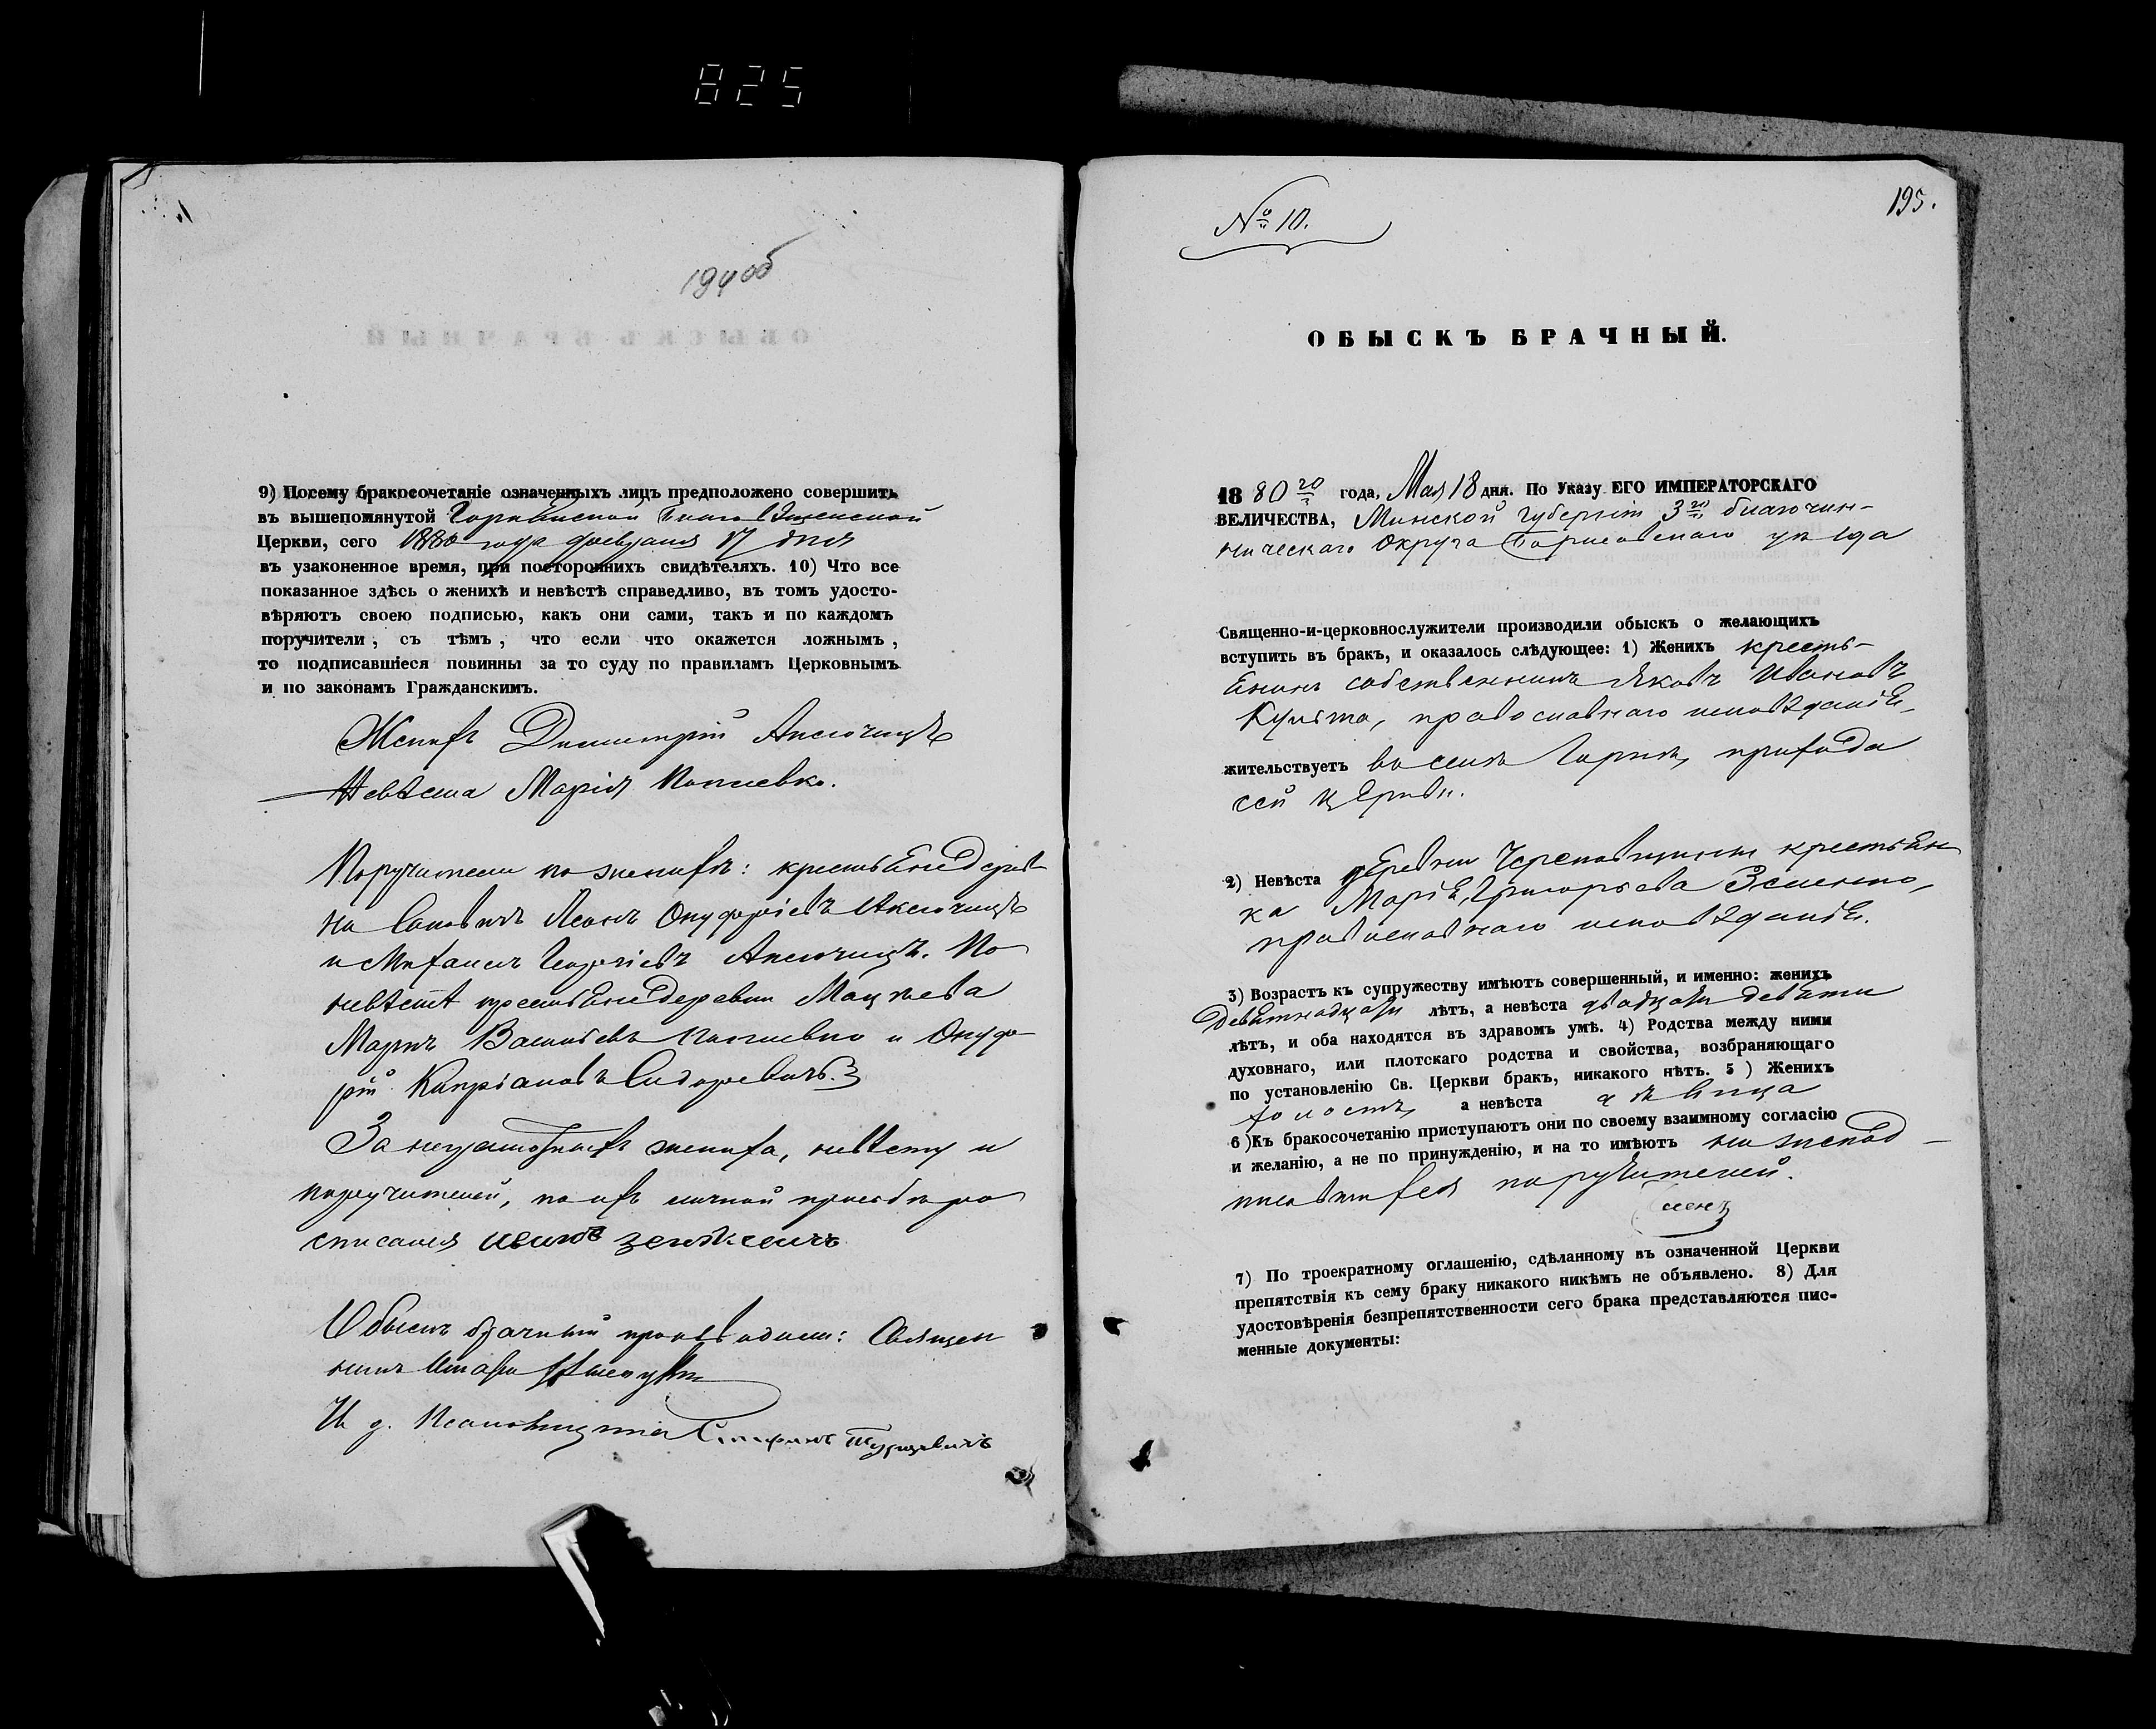 825
194об
9) Посему бракосочетаніе означенныхъ лицъ предположено совершить
въ вышепомянутой Горкинской Благовѣщенской
Церкви, сего 1880 года февраля 17 дня
въ узаконенное время, при постороннихъ свидѣтеляхъ. 10) Что все
показанное здѣсь о женихѣ и невѣстѣ справедливо, въ томъ удосто-
вѣряютъ своею подписью, какъ они сами, такъ и по каждомъ
поручители, съ тѣмъ, что если что окажется ложнымъ,
то подписавшіеся повинны за то суду по правиламъ Церковнымъ
и по законамъ Гражданскимъ.
Женихъ Димитрій Аксючицъ
Невѣста Марія
Поручители по женихѣ: крестьяне дерев
на Леонъ Онуфріевъ Аксючицъ
и Михаилъ Георгіевъ Аксючицъ. По
невѣстѣ крестьяне деревни
Васильевъ и Онуф
рій Кипріановъ Сидоревичъ.
За неграмотныхъ жениха, невѣсту и
поручителей, по ихъ личной просьбѣ ро
списался
Обыскъ брачный производили: Священ
никъ
И д. Псаломщика Турцевичъ
№ 10.
195.
ОБЫСКЪ БРАЧНЫЙ.
1880го года, Мая 18 дня. По Указу ЕГО ИМПЕРАТОРСКАГО
ВЕЛИЧЕСТВА, Минской губерніи 3го благочин-
ническаго Округа Борисовскаго уѣзда
Священно-и-церковнослужители производили обыскъ о желающихъ
вступить въ бракъ, и оказалось слѣдующее: 1) Женихъ кресть-
янинъ собственникъ Яковъ Ивановъ
православнаго исповѣданія,
жительствуетъ въ селѣ прихода
сей церкви.
2) Невѣста деревни крестьян
ка Марія Григорьева
православнаго исповѣданія.
3) Возрастъ къ супружеству имѣютъ совершенный, и именно: женихъ
девятнадцати лѣтъ, а невѣста двадцати девяти
лѣтъ, и оба находятся въ здравомъ умѣ. 4) Родства между ними
духовнаго, или плотскаго родства и свойства, возбраняющаго
по установленію Св. Церкви бракъ, никакого нѣтъ. 5) Женихъ
холостъ, а невѣста дѣвица
6) Къ бракосочетанію приступаютъ они по своему взаимному согласію
и желанію, а не по принужденію, и на то имѣютъ нижепод-
писавшихся поручителей.
7) По троекратному оглашенію, сдѣланному въ означенной Церкви
препятствія къ сему браку никакого никѣмъ не объявлено. 8) Для
удостовѣренія безпрепятственности сего брака представляются пис-
менные документы: